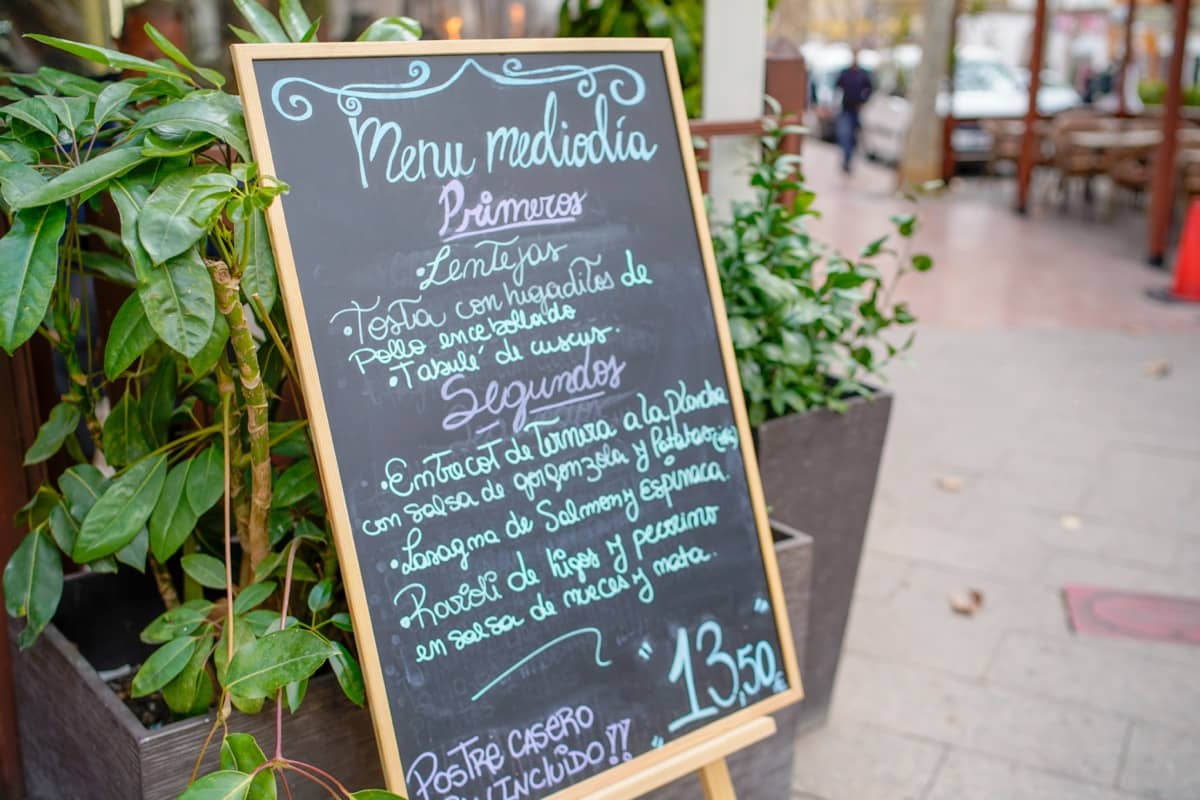 Menu mediodía
Primeros
·Lentejas
·Tosta con higaditos de
Pollo encebollado
·Tabulé de cuscus.
Segundos
·Entrecot de Ternera a la plancha
con salsa de gorgonzola y Patatas
·Lasagna de Salmon y espinaca.
·Ravioli de higos y pecorino
en salsa de nueces y nata.
"13,50€"
POSTRE CASERO
INCLUIDO!!